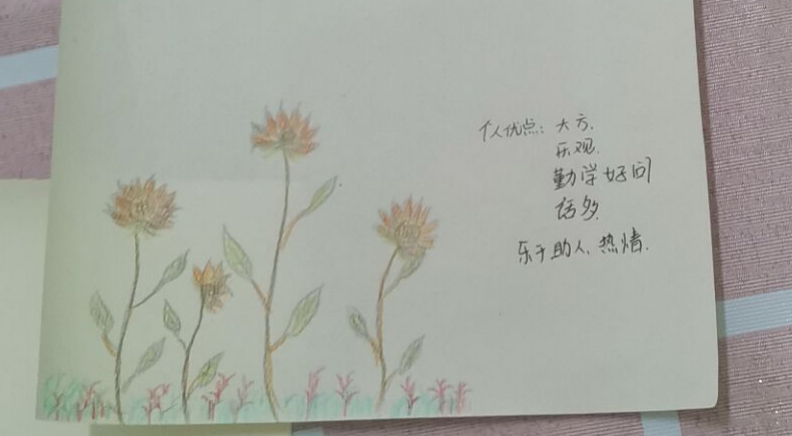 个人优点：大方、
乐观、
勤学好问
话多
乐于助人、热情.